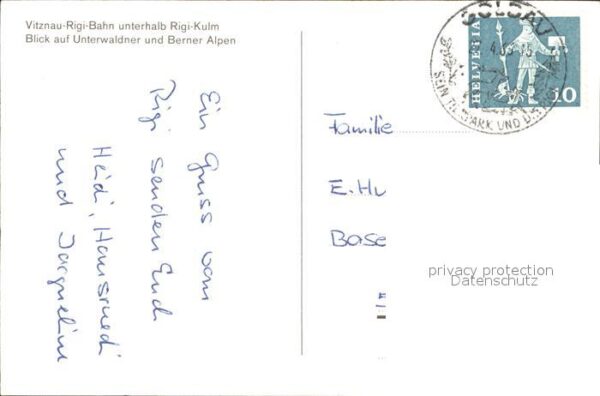 Vitznau-Rigi-Bahn unterhalb Rigi-Kulm
Blick auf Unterwaldner und Berner Alpen
Ein Gruss vom
Rigi senden Euch
Heidi, Hansruedi
und Jacqueline
GOLDAU
HELVETIA
10
Familie
E. Hu
Base
privacy protection
Datenschutz